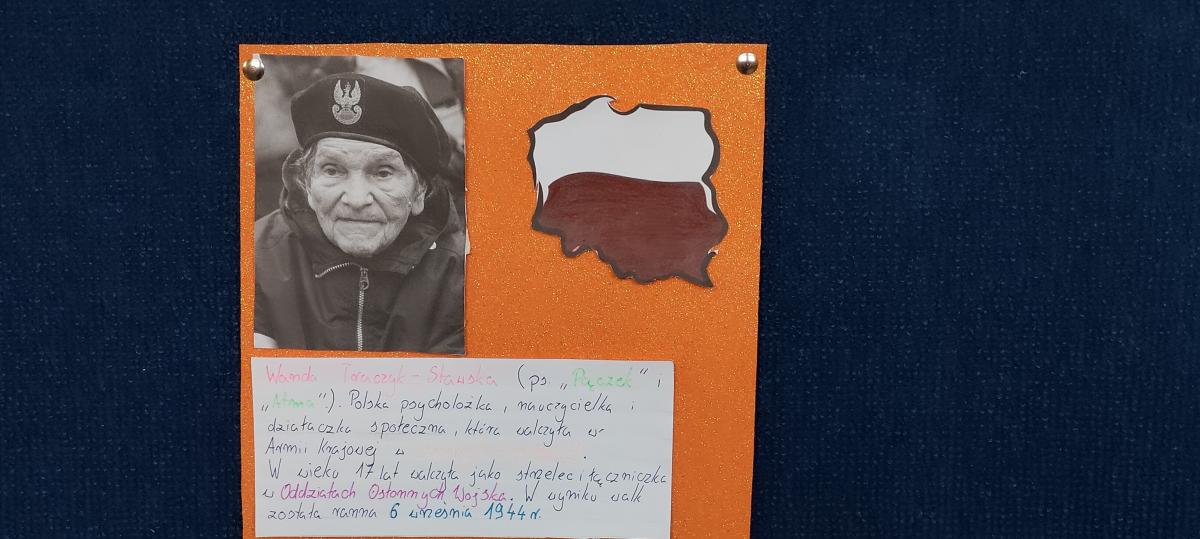 Wanda Traczyk-Stawska (ps. „Pączek” i
„Atma”). Polska psycholożka, nauczycielka i
działaczka społeczna, która walczyła w
Armii Krajowej w .
W wieku 17 lat walczyła jako strzelec i łączniczka
w Oddziałach Osłonnych Wojska. W wyniku walk
została ranna 6 września 1944 r.